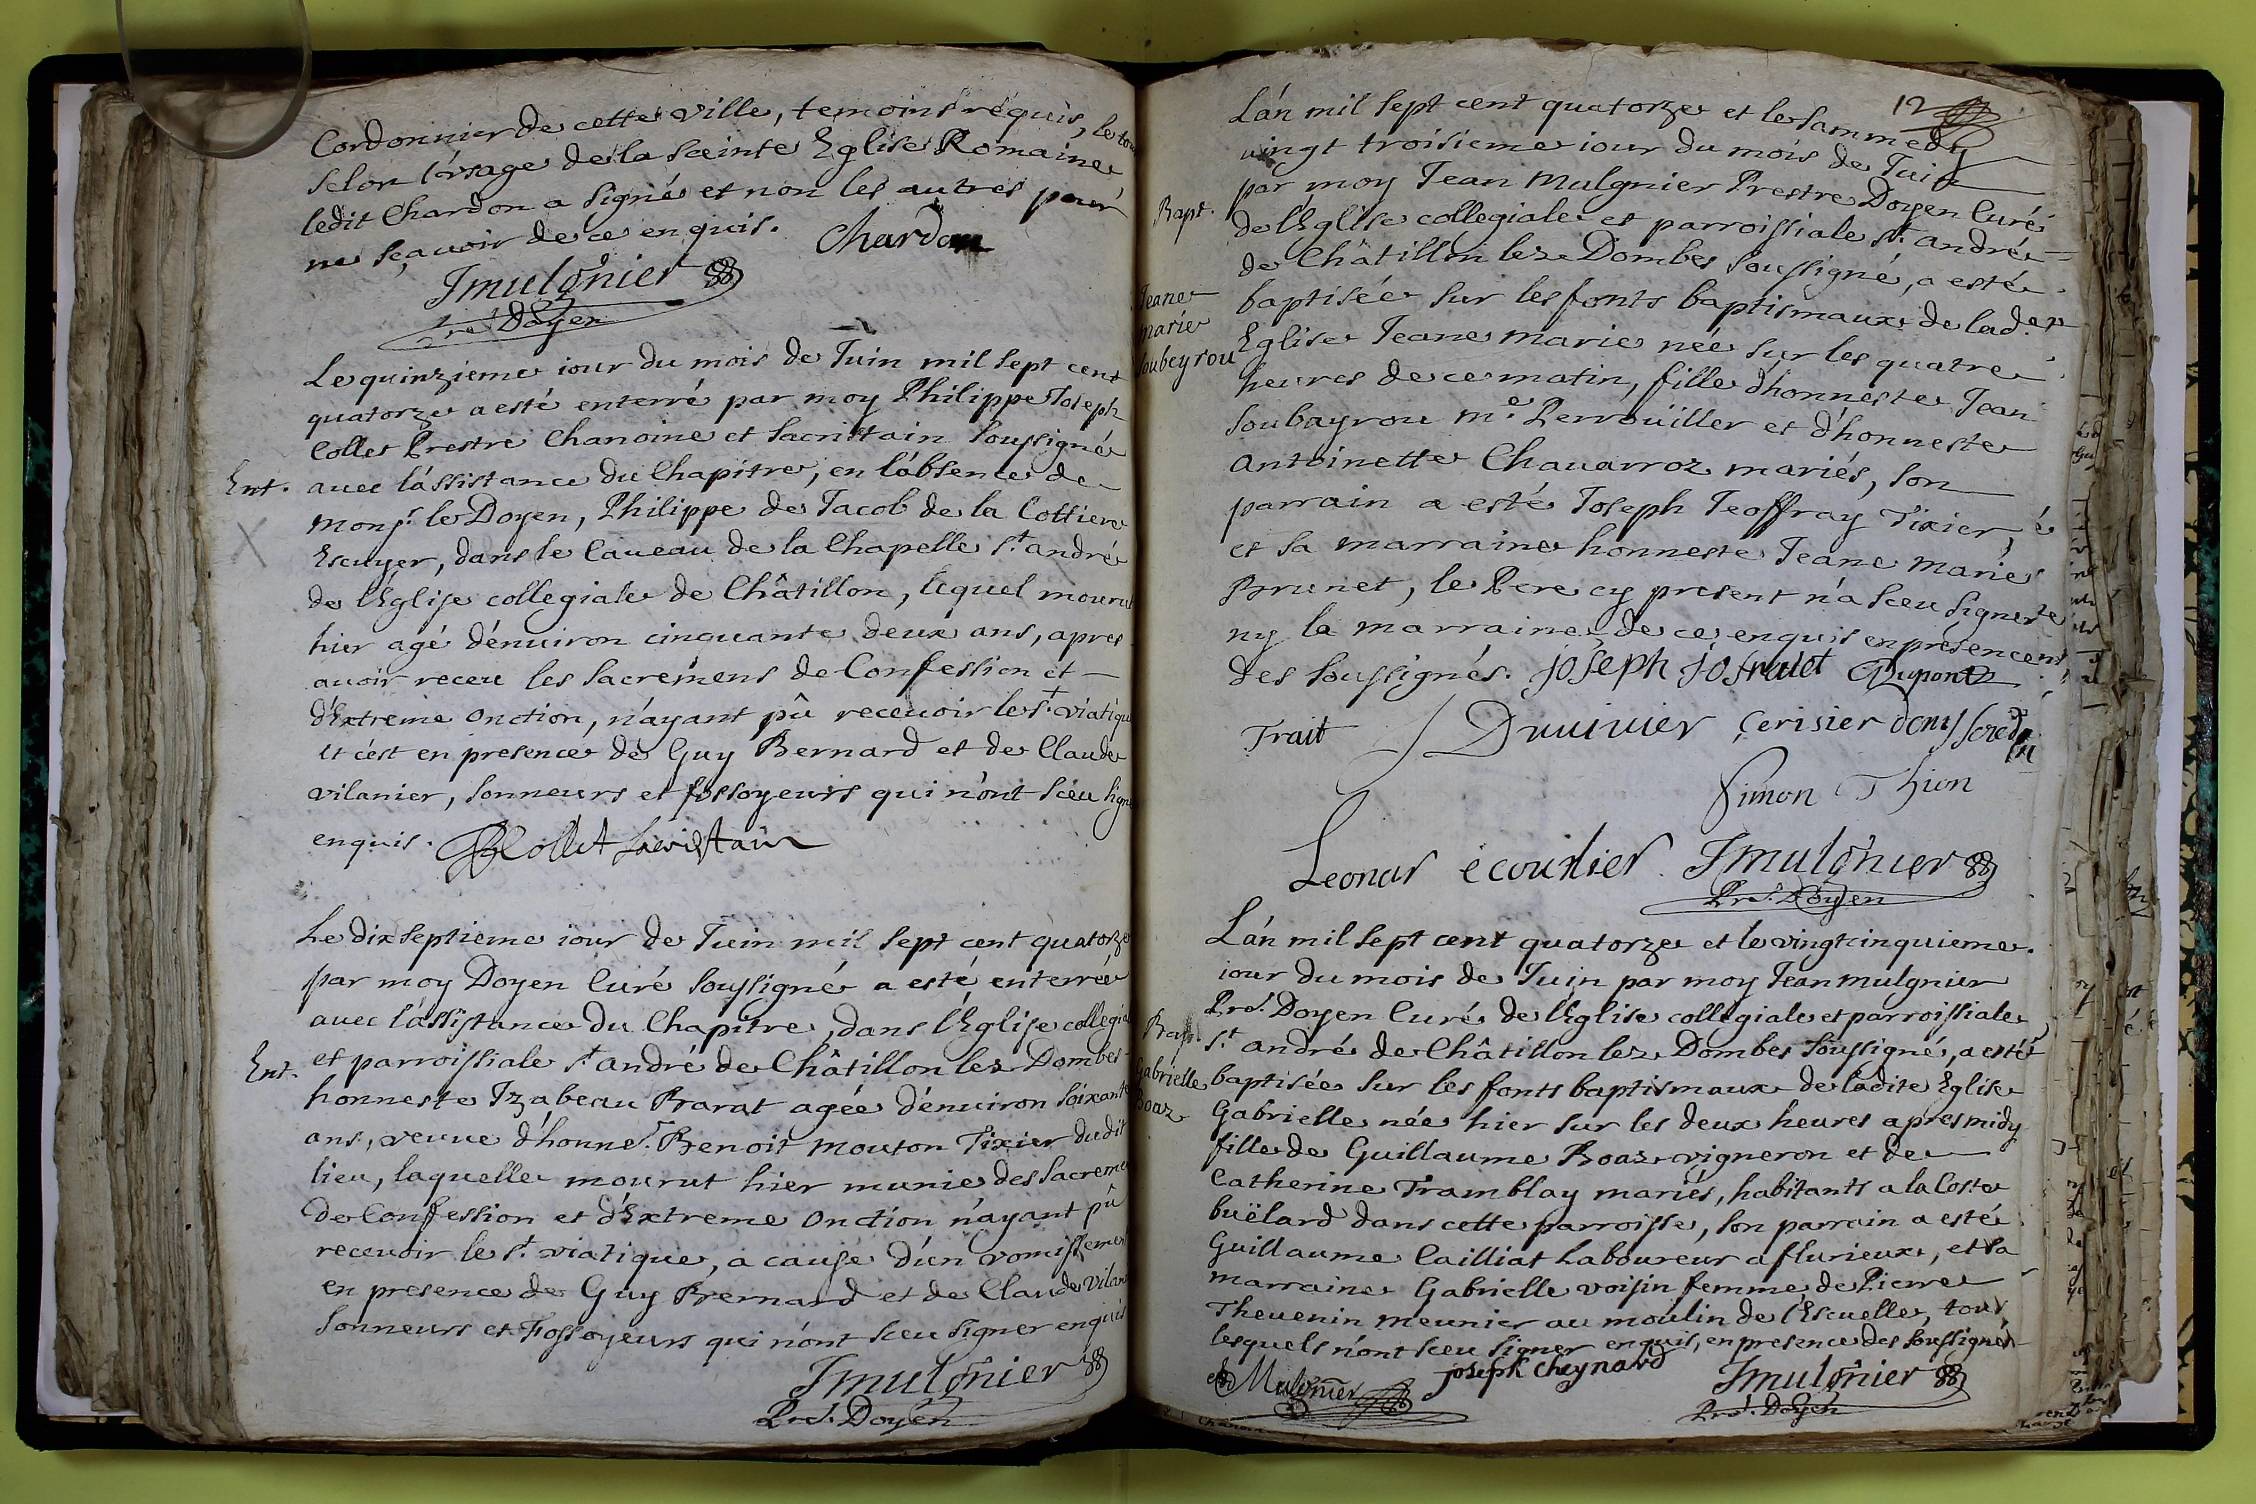 Cordonnier de cette ville, temoins requis, le tou
selon l'vsage de la sainte Eglise Romaine
ledit Chardon a signé et non les autres pour
ne sçauoir de ce enquis. Chardon
Jmulgnier
Pre. Doyen
Le quinzieme iour du mois de Juin mil sept cent
quatorze a esté enterré par moy Philippe Joseph
Collet Prestre Chanoine et Sacristain soussigné
Ent. auec l'assistance du Chapitre, en l'absence de
Monsr. le Doyen, Philippe de Jacob de la Cottiere
Escuyer, dans le Caueau de la Chapelle st. andré
de l'Eglise collegiale de Châtillon, lequel mourut
hier agé d'enuiron cinquante deux ans, apres
auoir receu les sacremens de Confession et
d'Extreme onction, n'ayant pû receuoir le st. viatiqu
et c'est en presence de Guy Bernard et de Claude
vilanier, sonneurs et fossoyeurs qui n'ont sceu signe
enquis. Collet Sacristain
Le dix septieme iour de Juin mil sept cent quatorze
par moy Doyen Curé soussigné a esté enterrée
auec l'assistance du Chapitre, dans l'Eglise collegia
Ent. et parroissiale st. andré de Châtillon lez Dombes
honneste Jzabeau Prarat agée d'enuiron soixante
ans, veuue d'honnet. Benoit Mouton Tixier dudit
lieu, laquelle mourut hier munie des sacreme
de Confession et d'Extreme onction n'ayant pû
receuoir le st. viatique, a cause d'un vomissemen
en presence de Guy Bernard et de Claude Vilan
sonneurs et Fossoyeurs qui n'ont sceu signer enquis
Jmulgnier
Pre. Doyen
12
L'an mil sept cent quatorze et le sammedy
vingt troisieme iour du mois de Juin
par moy Jean Mulgnier Prestre Doyen Curé
Bapt. de l'Eglise collegiale et parroissiale st. andré
de Châtillon lez Dombes soussigné, a esté
Jeane baptisée sur les fonts baptismaux de lad.
marie Eglise Jeane marie née sur les quatre
soubeyrou heures de ce matin, fille d'honneste Jean
Soubayrou me. Perroüiller et d'honneste
Antoinette Chauarroz mariés, son
parrain a esté Joseph Jeoffray Tixier,
et sa marraine honneste Jeane Marie
Brunet, le Pere cy present n'a sceu signer
ny la marraine de ce enquis en présence
des soussignés. joseph jofraict Dupont
Trait Duuiuier Cerisier
Simon Thion
Leonar écourtier Jmulgnier
Pre. Doyen
L'an mil sept cent quatorze et le vingtcinquieme
iour du mois de Juin par moy Jean Mulgnier
Pre. Doyen Curé de l'Eglise collegiale et parroissiale
Bapt. st. andré de Châtillon lez Dombes soussigné, a esté
Gabrielle baptisée sur les fonts baptismaux de ladite Eglise
Boaz Gabrielle née hier sur les deux heures apres midy
fille de Guillaume Boaz vigneron et de
Catherine Tramblay mariés, habitants a la Coste
buëlard dans cette parroisse, son parrain a esté
Guillaume Cailliat Laboureur a flurieux, et sa
marraine Gabrielle voisin femme de Pierre
Theuenin meunier au moulin de l'Escuelle, tous
lesquels n'ont sceu signer enquis, en presence des soussignés
Mulgnier joseph cheynard Jmulgnier
Pre. Doyen